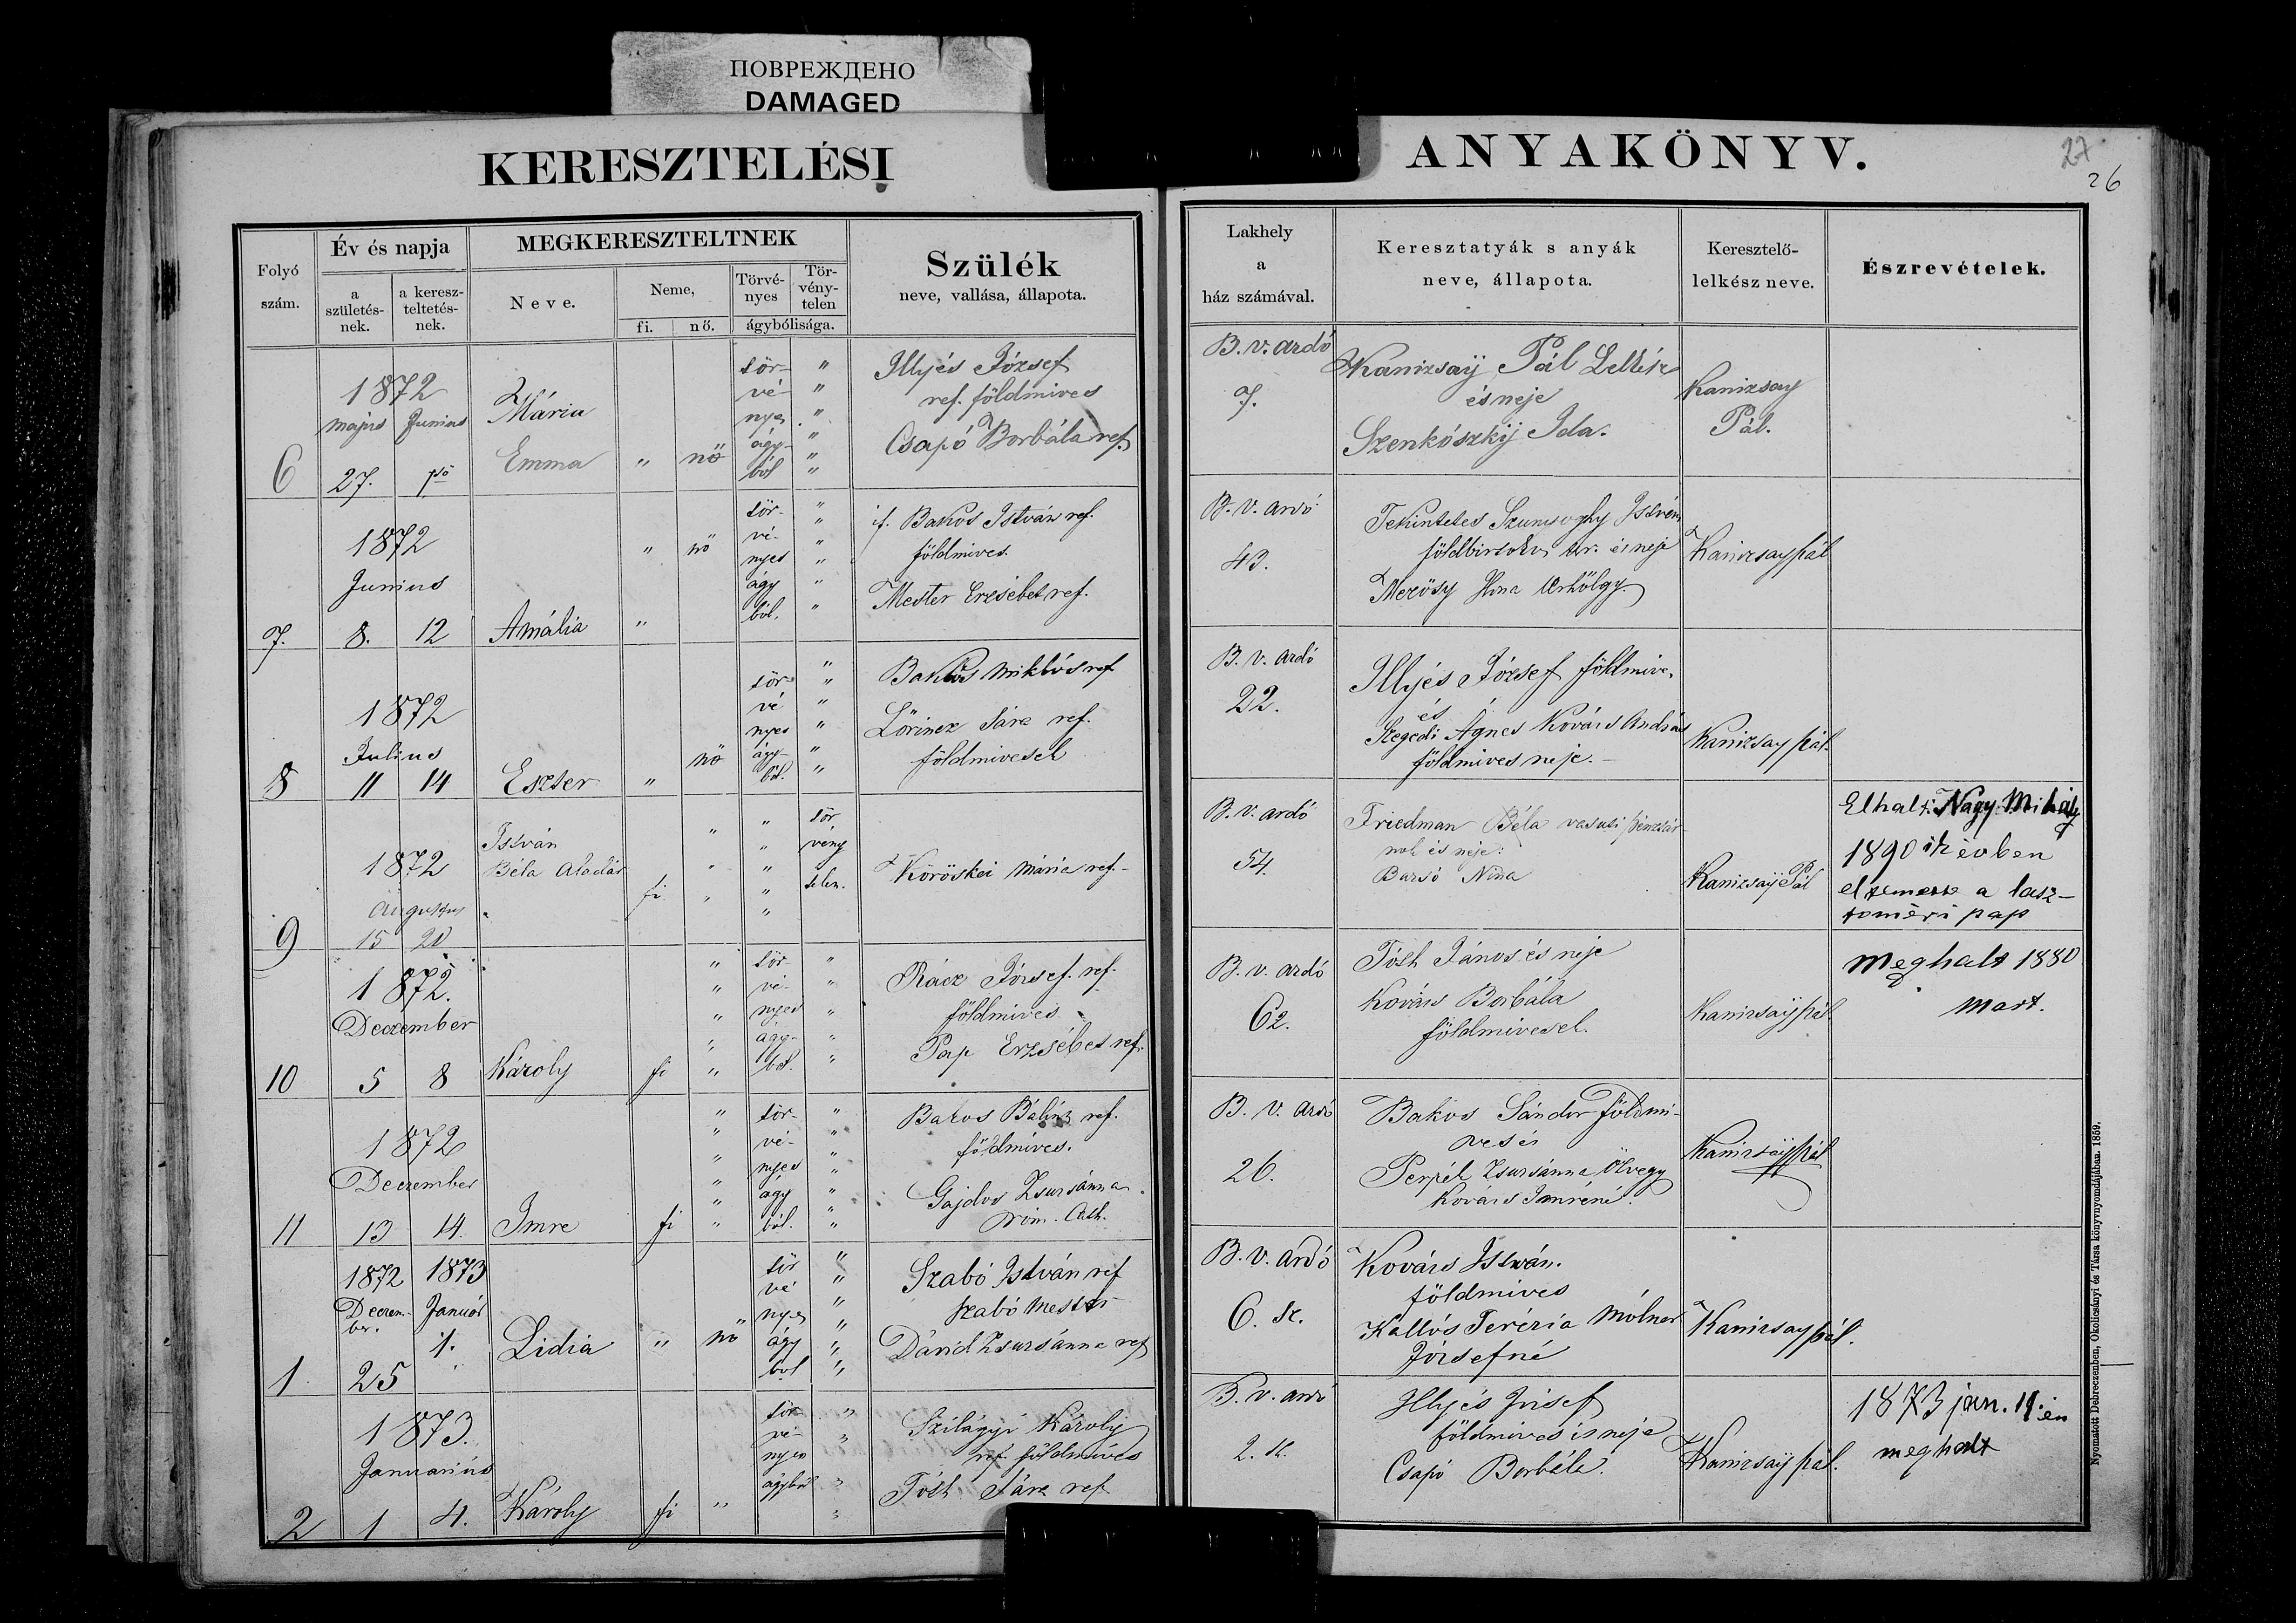 ПОВРЕЖДЕНО
DAMAGED
KERESZTELÉSI
ANYAKÖNYV.
27
26
Folyó szám.
Év és napja
a születésnek.
a kereszteltetésnek.
MEGKERESZTELTNEK
Neve.
Neme,
fi.
nő.
Törvényes
Törvénytelen
ágybólisága.
Szülék
neve, vallása, állapota.
Lakhely
a
ház számával.
Keresztatyák s anyák
neve, állapota.
Keresztelő-
lelkész neve.
Észrevételek.
6
1872
május Junius
27. 1ső
Mária
Emma
" nő
tör-
vé-
nyes
ágy-
ból
Illyés József
ref. földmives
Csapó Borbála ref.
B. v. ardó
7.
Kanizsaÿ Pál Lelkész
és neje
Szenkószkÿ Ida.
Kanizsay
Pál.
7.
1872
Junius
8. 12
Amália
" nő
tör-
vé-
nyes
ágy
ból.
if. Bakos István ref.
földmives.
Mester Erzsébet ref.
B. v. ardó
43.
Tekintetes István
földbirtokos úr és neje
Mezősy Ilona Úrhölgy.
Kanizsay pál
8
1872
Julius
11 14
Eszter
" nő
tör-
vé
nyes
ágy-
ból.
Bakos Miklós ref
Lőrincz Sára ref.
földmivesek
B. v. ardó
22.
Illyés József földmive,
és
Szegedi Ágnes Kovács András
földmives neje.-
Kanizsay pál.
9
1872
Augusztus
15 20
István
Béla Aladár
fi
tör
vény
telen.
Köröskei Mária ref.-
B. v. ardó
54.
Friedman Béla vasuti pénztár-
nok és neje:
Barsó Nina
Kanizsaÿ Pál
Elhalt. Nagy Mihály
1890ik évben
eltemette a lasz-
toméri pap
10
1872.
Deczember
5 8
Károly
fi
tör-
vé-
nyes
ágy-
ból.
Rácz József. ref.
földmives.
Pap Erzsébet ref.
B. v. ardó
62.
Tóth János és neje
Kovács Borbála
földmivesek.
Kanizsaÿ pál
meghalt 1880
Mart.
11
1872
Deczember
13 14.
Imre
fi
tör-
vé-
nyes
ágy
ból.
Bakos Bálint ref.
földmives.
Gajdos Zsuzsánna
róm. Cath.
B. v. ardó
26.
Bakos Sándor földmi-
ves és
Perpél Zsuzsánna Özvegy
Kovács Imréné.
Kanizsaÿ pál
1
1872 1873
Deczem-
ber. Január
25 1.
Lidia
" nő
tör
vé
nyes
ágy
ból
Szabó István ref
szabó Mester
Dávid Zsuzsánna ref
B. v. ardó
6. sz.
Kovács István.
földmives
Kallós Terézia Molnar
Józsefné
Kanizsay pál.
2
1873.
Januarius
1 4.
Károly
fi
tör-
vé-
nyes
ágyból
Szilágyi Károly
ref. földmives
Tóth Sára ref
B. v. ardó
2. sz.
Illyés József
földmives és neje
Csapó Borbála.
Kanizsaÿ pál.
1873 jan. 11.én
meghalt
Nyomatott Debreczenben, Okolicsányi és Társa könyvnyomdájában. 1859.